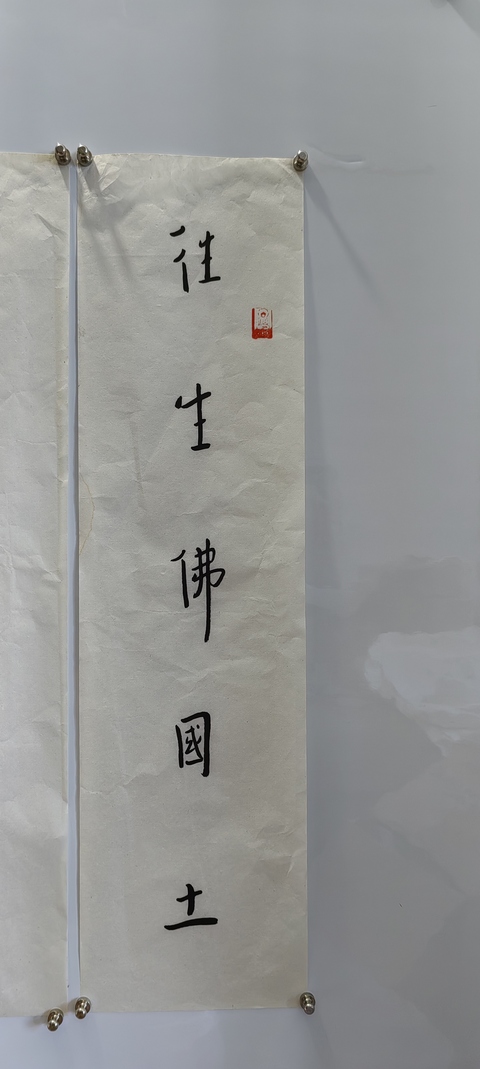 往生佛國土